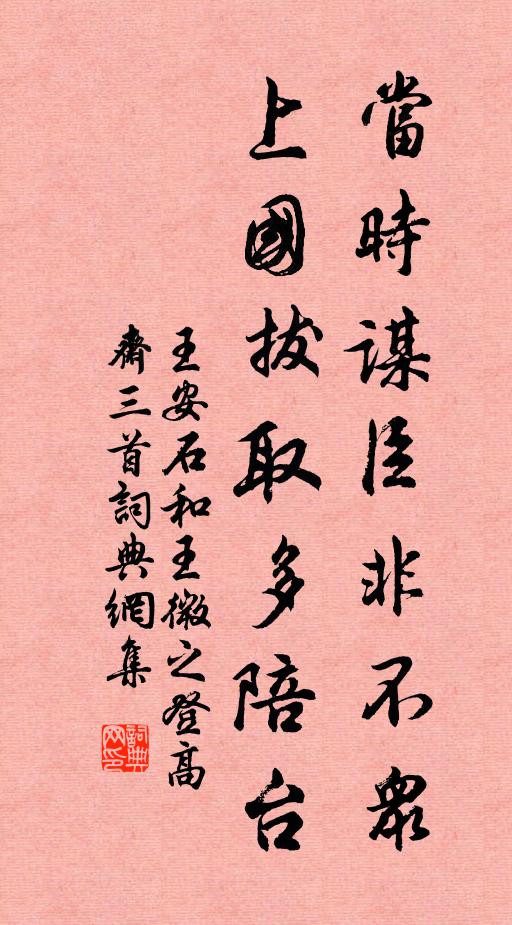 當時謀臣非不衆
上國拔取多陪台
王安石和王微之登高
齋三首詞典網集
詞典网印